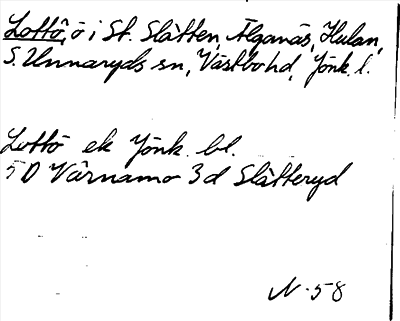 Lottö, ö i St. Slätten, Älganäs, Hulan,
S. Unnaryds sn, Västbo hd, Jönk. l.
Lottö ek Jönk. bl.
5 D Värnamo 3 d Slätteryd
N-58